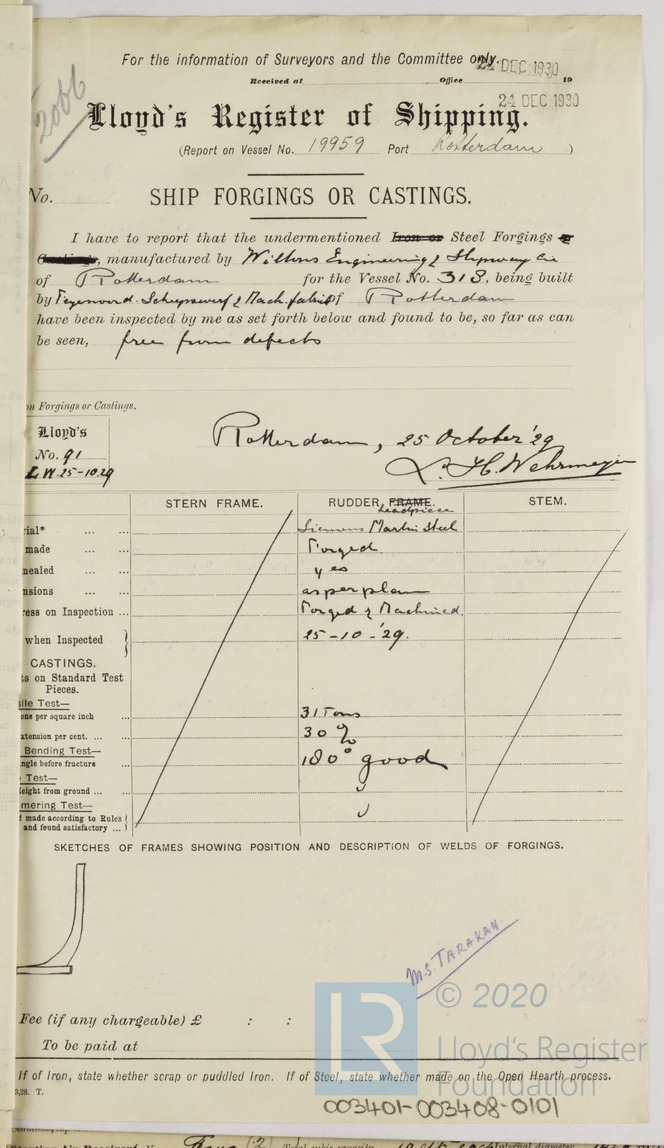 For the information of Surveyors and the Committee only.
24 DEC 1930
Received at Office 19
24 DEC 1930
2066
Lloyd's Register of Shipping.
(Report on Vessel No. 19959 Port Rotterdam )
No. SHIP FORGINGS OR CASTINGS.
I have to report that the undermentioned Iron or Steel Forgings or
Castings, manufactured by Wiltons Engineering & Slipway Co
of Rotterdam for the Vessel No. 313, being built
by Feyenoord. Scheepswerf & Mach. fabriek of Rotterdam
have been inspected by me as set forth below and found to be, so far as can
be seen, free from defects
on Forgings or Castings.
Lloyd's
No. 91
L.W. 25-10.29
Rotterdam, 25 October '29
L. H. Wehrmeyer
STERN FRAME. RUDDER, FRAME. STEM.
headpiece
ial* ... ... Siemens Martin Steel
made ... ... Forged
nealed ... ... yes
nsions ... ... as per plan
ress on Inspection ... Forged & Machined.
when Inspected 25-10-'29.
CASTINGS.
ts on Standard Test
Pieces.
ile Test—
ons per square inch ... 31 Tons
xtension per cent. ... ... 30 %
Bending Test—
ngle before fracture ... 180° good
Test—
eight from ground ... ...
mering Test—
f made according to Rules
and found satisfactory ...
SKETCHES OF FRAMES SHOWING POSITION AND DESCRIPTION OF WELDS OF FORGINGS.
M.S. TARAKAN
LR © 2020
Lloyd's Register
Foundation
Fee (if any chargeable) £ : :
To be paid at
If of Iron, state whether scrap or puddled Iron. If of Steel, state whether made on the Open Hearth process.
3,28. T.
003401-003408-0101